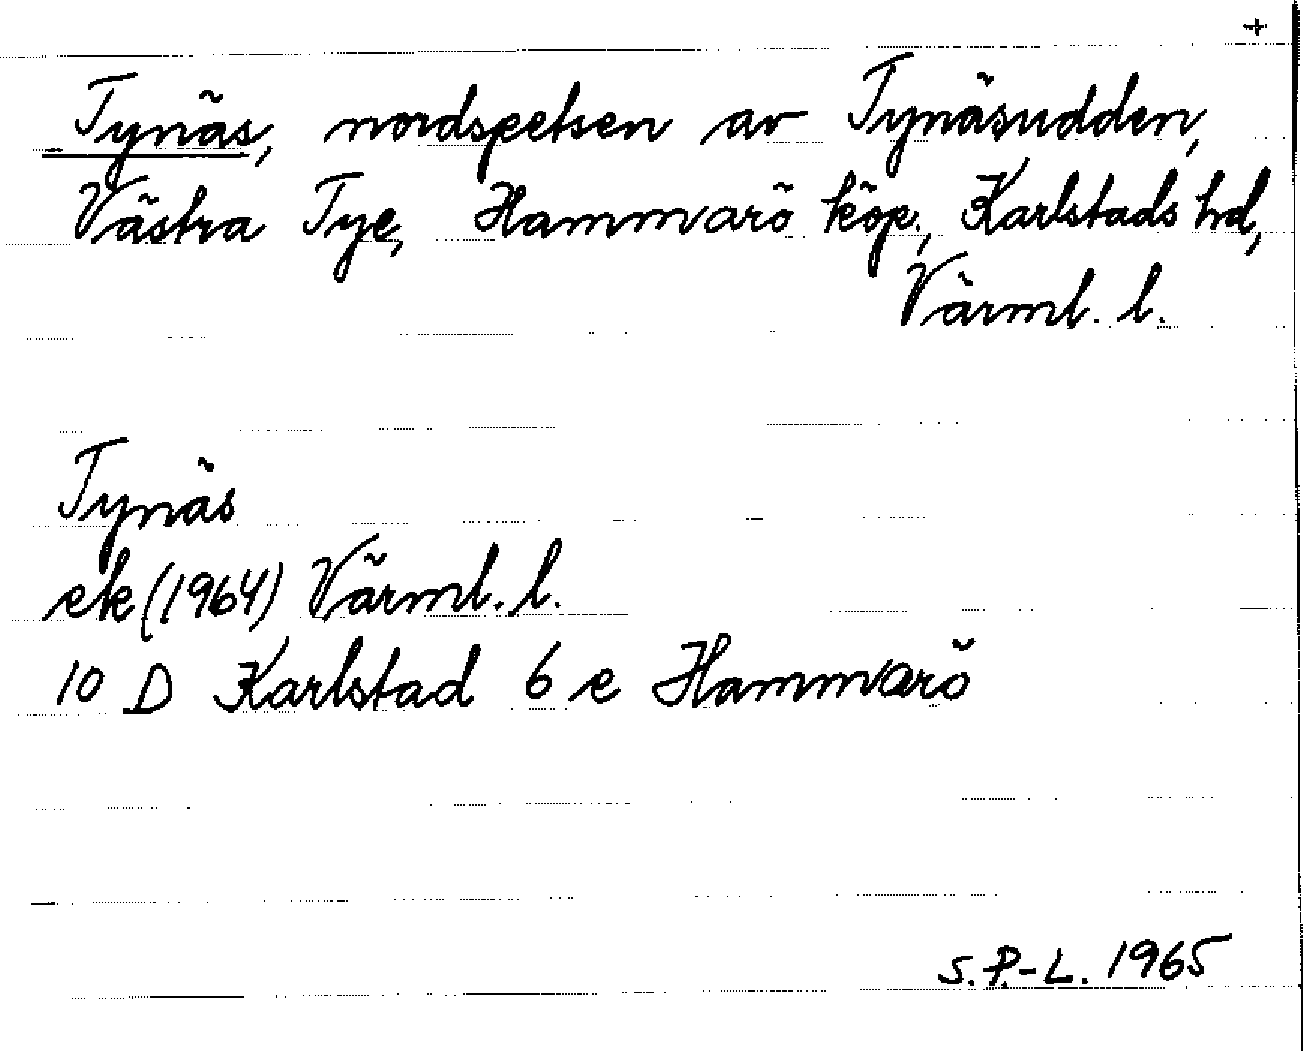 +
Tynäs, nordspetsen av Tynäsudden,
Västra Tye, Hammarö köp., Karlstads hd,
Värml. l.
Tynäs
ek (1964) Värml. l.
10 D Karlstad 6 e Hammarö
S.P.-L. 1965